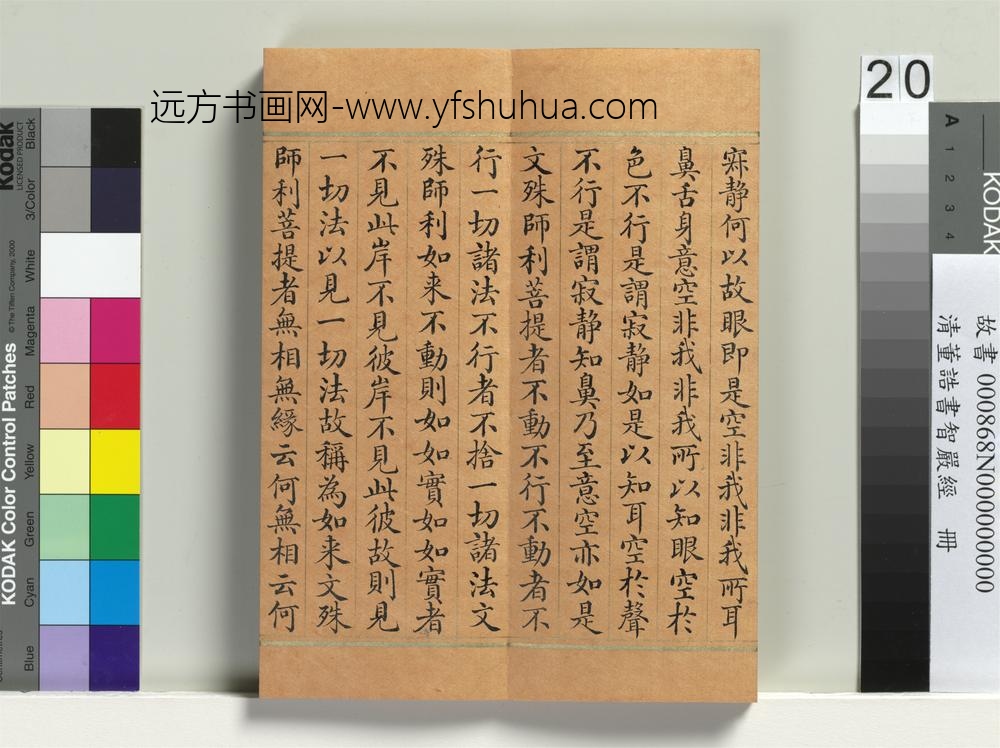 远方书画网-www.yfshuhua.com
寂静何以故眼即是空非我非我所耳
鼻舌身意空非我非我所以知眼空於
色不行是謂寂静如是以知耳空於聲
不行是謂寂静知鼻乃至意空亦如是
文殊師利菩提者不動不行不動者不
行一切諸法不行者不捨一切諸法文
殊師利如来不動則如如實如如實者
不見此岸不見彼岸不見此彼故則見
一切法以見一切法故稱為如来文殊
師利菩提者無相無緣云何無相云何
20
KODAK Color Control Patches
© The Tiffen Company, 2000
Kodak
LICENSED PRODUCT
Blue Cyan Green Yellow Red Magenta White 3/Color Black
A 1 2 3 4
KODAK
故書 000868N000000000
清董誥書智嚴經 冊